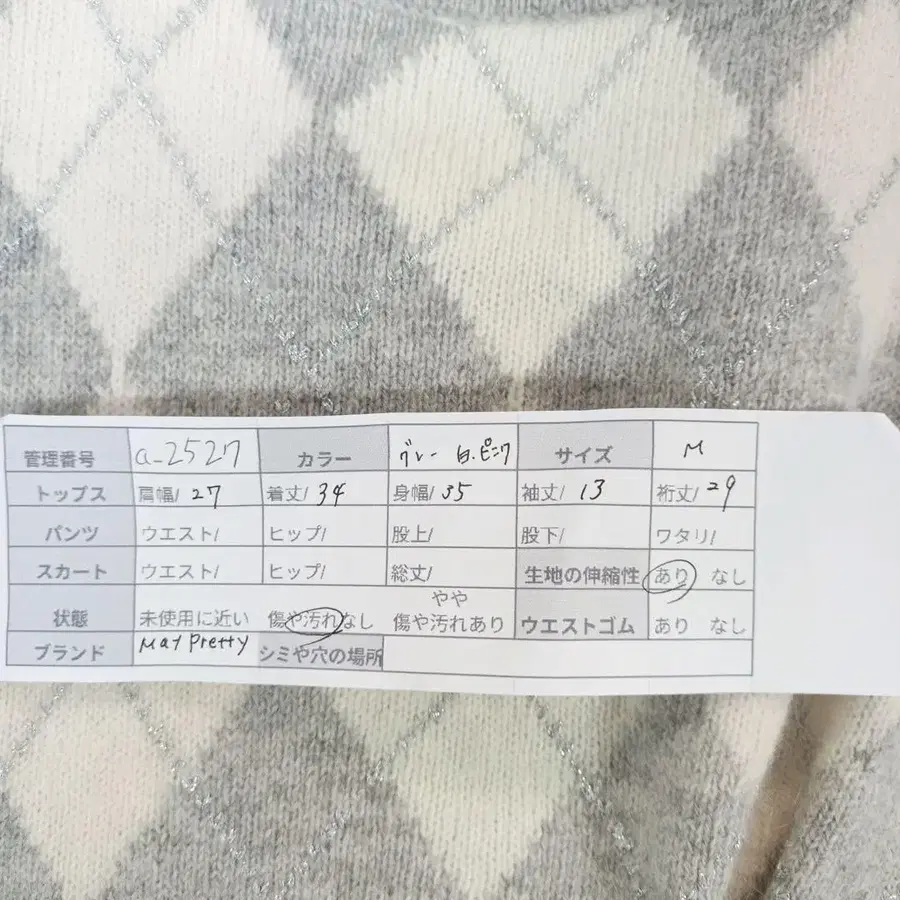 管理番号 a-2527 カラー グレー 白.ピンク サイズ M
トップス 肩幅/ 27 着丈/ 34 身幅/ 35 袖丈/ 13 裄丈/ 29
パンツ ウエスト/ ヒップ/ 股上/ 股下/ ワタリ/
スカート ウエスト/ ヒップ/ 総丈/ 生地の伸縮性 あり なし
状態 未使用に近い 傷や汚れなし やや傷や汚れあり ウエストゴム あり なし
ブランド May Pretty シミや穴の場所